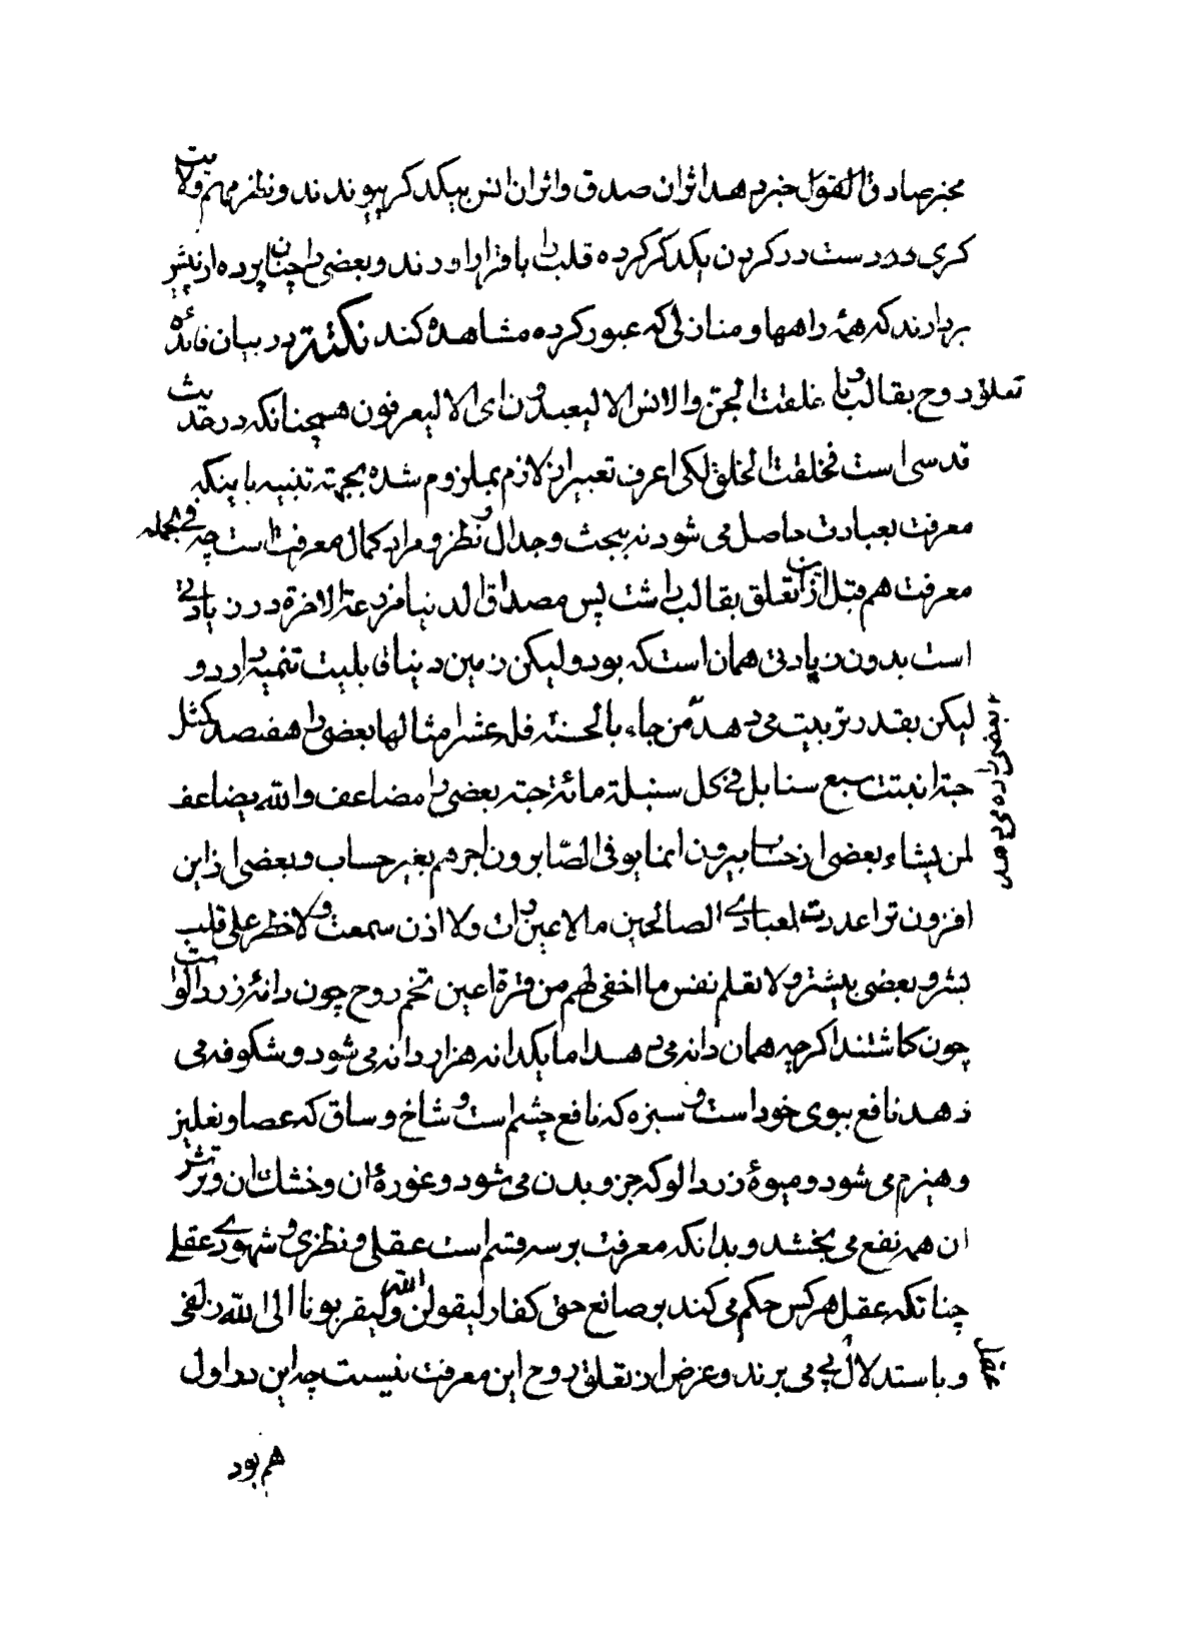 مخبر صادق القول خبر دهد اثر ان صدق و اثر ان انس بیکدکر پیوندند و نظر مهر ولایت
کری در دست در کردن یکدکر کرده قلب را باقرار اورند و بعضی را چنان پرده از پیش
بردارند که همهٔ راهها و منازلی که عبور کرده مشاهده کند نکتة در بیان فائدهٔ
تعلق روح بقالب و ما خلقت الجن والانس الا لیعبدون ای الا لیعرفون همچنانکه در حدیث
قدسی است فخلقت الخلق لکی اعرف تعبیر از لازم بملزوم شده بجهة تنبیه باینکه
معرفت بعبادت حاصل می شود نه ببحث و جدال و نظر و مراد کمال معرفت است چه فی الجمله
معرفت هم قبل ازین تعلق بقالب داشت پس مصداق الدنیا مزرعة الاخرة در زیادتی
است بدون زیادتی همان است که بود ولیکن زمین دنیا قابلیت تنمیه دارد و
لیکن بقدر تربیت می دهد من جاء بالحسنة فله عشر امثالها بعضی را هفتصد کمثل
حبة انبتت سبع سنابل فی کل سنبلة مائة حبة بعضی را مضاعف والله یضاعف
لمن یشاء بعضی از حساب بیرون انما یوفی الصابرون اجرهم بغیر حساب و بعضی ازین
افزون تر اعددت لعبادی الصالحین ما لا عین رات ولا اذن سمعت ولا خطر علی قلب
بشر و بعضی بیشتر ولا تعلم نفس ما اخفی لهم من قرة اعین تخم روح چون دانهٔ زردالو است
چون کاشتند اکرچه همان دانه می دهد اما یکدانه هزار دانه می شود و شکوفه می
دهد نافع ببوی خود است و سبزه که نافع چشم است و شاخ و ساق که عصا و نعلین
و هیزم می شود و میوهٔ زردالو که جزو بدن می شود و غورهٔ ان و خشك ان و ترش
ان همه نفع می بخشد و بدانکه معرفت بر سه قسم است عقلی و نظری و شهودی عقلی
چنانکه عقل هر کس حکم می کند بر صانع حتی کفار لیقولن الله و لیقربونا الی الله زلفی
و باستدلال پی می برند و غرض از تعلق روح این معرفت نیست چه این در اول
هم بود
بعضی را ده می دهد